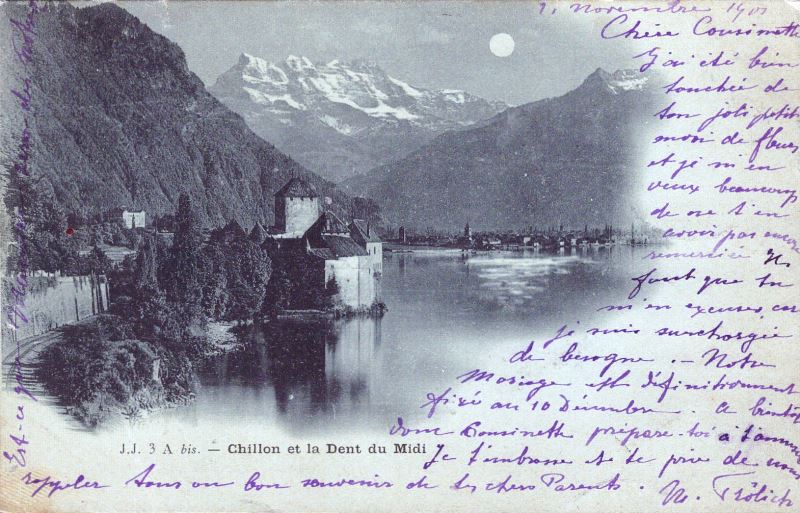 1. Novembre 1901
Chère Cousinette
J'ai été bien
touchée de
ton joli petit
envoi de fleurs
et je m'en
veux beaucoup
de ne t'en
avoir pas encore
remerciée Il
faut que tu
m'en excuses, car
je suis surchargée
de besogne. - Notre
Mariage est définitivement
fixé au 10 Décembre. A bientôt
donc Cousinette prépare-toi à t'amuser
J.J. 3 A bis. — Chillon et la Dent du Midi
Je t'embrasse et te prie de nous
rappeler tous au bon souvenir de tes chers Parents. M. Frölich
Est-ce que